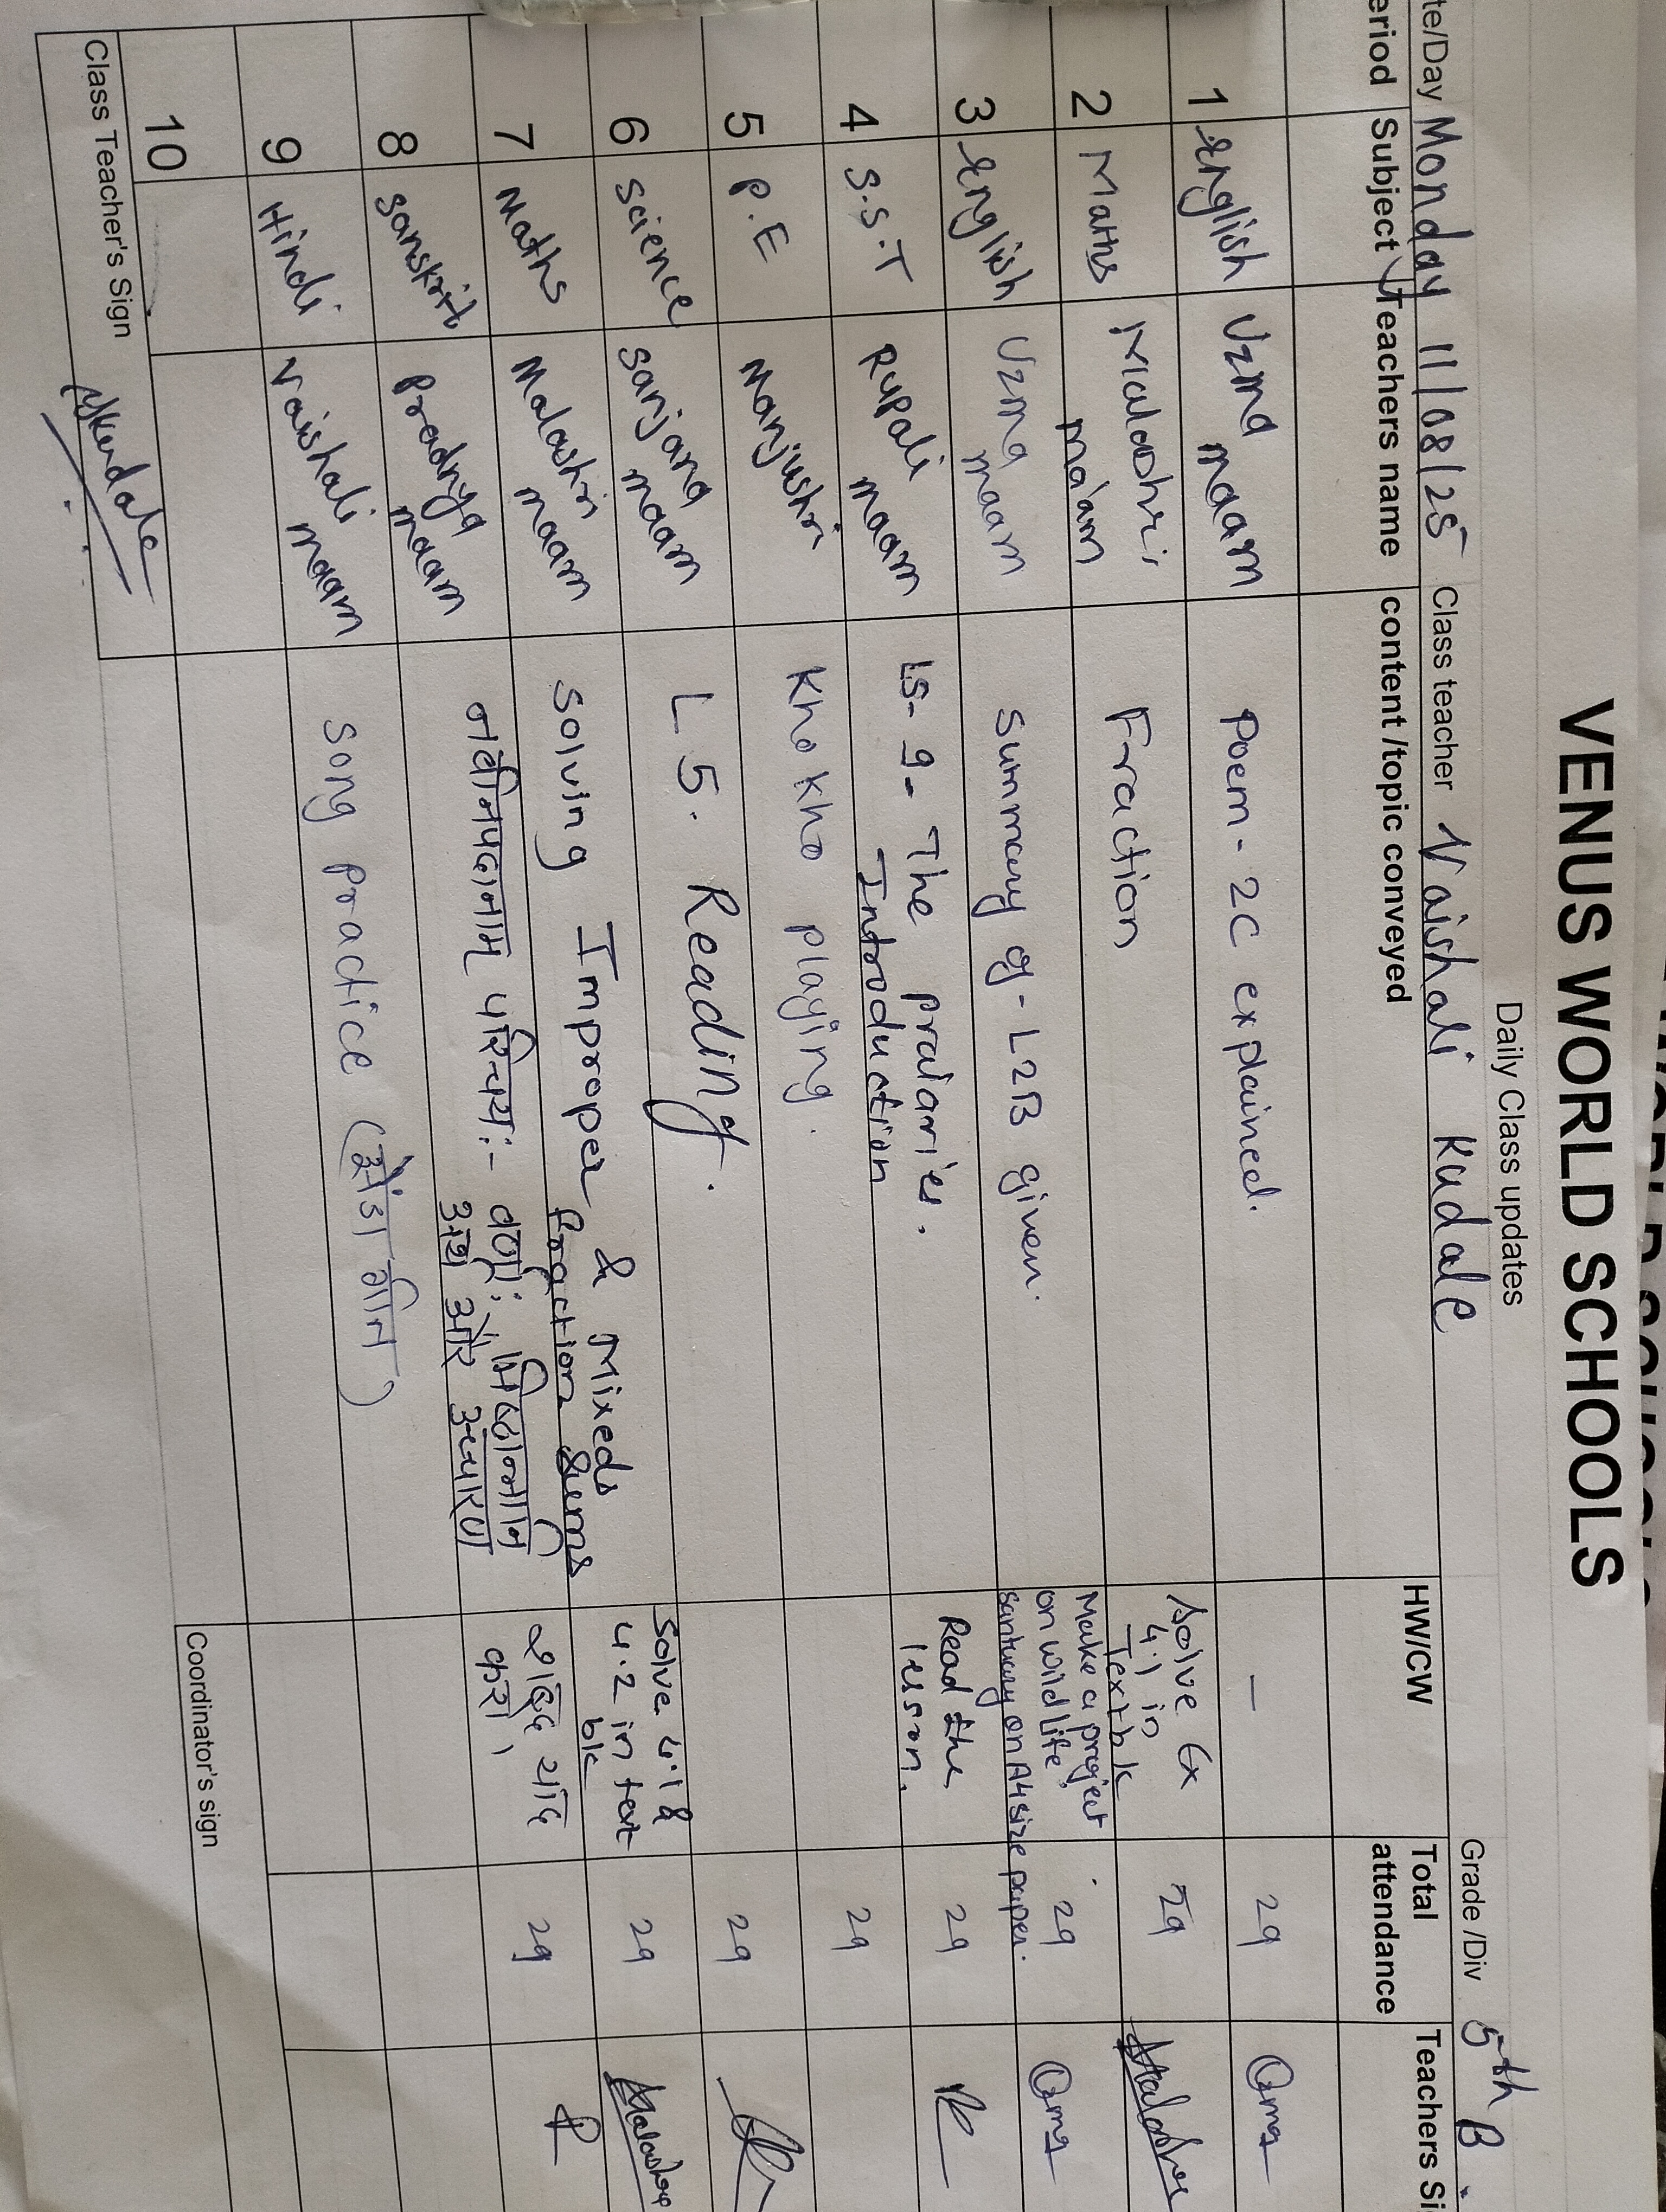 VENUS WORLD SCHOOLS
Daily Class updates
te/Day Monday 11/08/25 Class teacher Vaishali Kudale Grade /Div 5th B
eriod Subject Teachers name content /topic conveyed HW/CW Total attendance Teachers Si
1 English Uzma maam Poem - 2C explained. — 29
2 Maths Malashri ma'am Fraction Solve Ex 4.1 in Textbk 29
3 English Uzma maam Summary of - L2B given. Make a project on wild life santuary on A4 size paper. 29
4 S.S.T Rupali maam LS- 9- The praiaries. Introduction Read the lesson. 29
5 P.E Manjushri Kho kho playing. 29
6 Science Sanjana maam L 5. Reading. 29
7 Maths Malashri maam Solving Improper & Mixed fraction sums Solve 4.1 & 4.2 in text bk 29
8 Sanskrit Pradnya maam नवीनपदानाम् परिचयः- वर्णाः, मिष्ठान्नानि अर्थ और उच्चारण शब्द याद करो। 29
9 Hindi Vaishali maam Song practice (झेंडा गीत)
10
Class Teacher's Sign Coordinator's sign